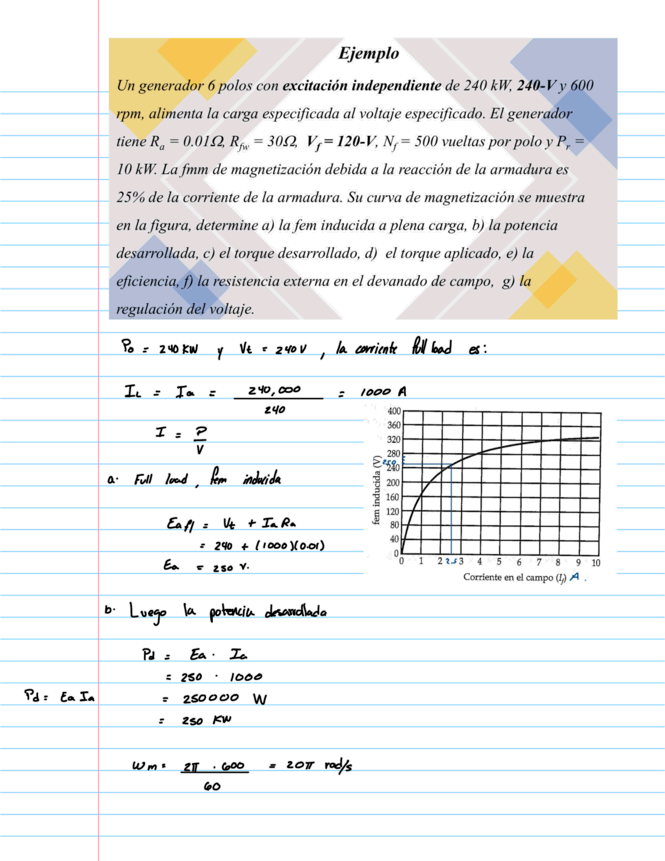 Ejemplo
Un generador 6 polos con excitación independiente de 240 kW, 240-V y 600
rpm, alimenta la carga especificada al voltaje especificado. El generador
tiene Rₐ = 0.01Ω, R_fw = 30Ω, V_f = 120-V, N_f = 500 vueltas por polo y P_r =
10 kW. La fmm de magnetización debida a la reacción de la armadura es
25% de la corriente de la armadura. Su curva de magnetización se muestra
en la figura, determine a) la fem inducida a plena carga, b) la potencia
desarrollada, c) el torque desarrollado, d) el torque aplicado, e) la
eficiencia, f) la resistencia externa en el devanado de campo, g) la
regulación del voltaje.
Po = 240 KW y Vt = 240 V, la corriente full load es:
IL = Ia = 240,000 / 240 = 1000 A
I = P / V
a. Full load, fem inducida
Eafl = Vt + Ia Ra
= 240 + (1000)(0.01)
Ea = 250 V.
400
360
320
280
250
240
200
160
120
80
40
0
0 1 2 2.5 3 4 5 6 7 8 9 10
fem inducida (V)
Corriente en el campo (I_f) A.
b. Luego la potencia desarrollada
Pd = Ea · Ia
= 250 · 1000
Pd = Ea Ia
= 250000 W
= 250 KW
Wm = 2π · 600 / 60 = 20π rad/s